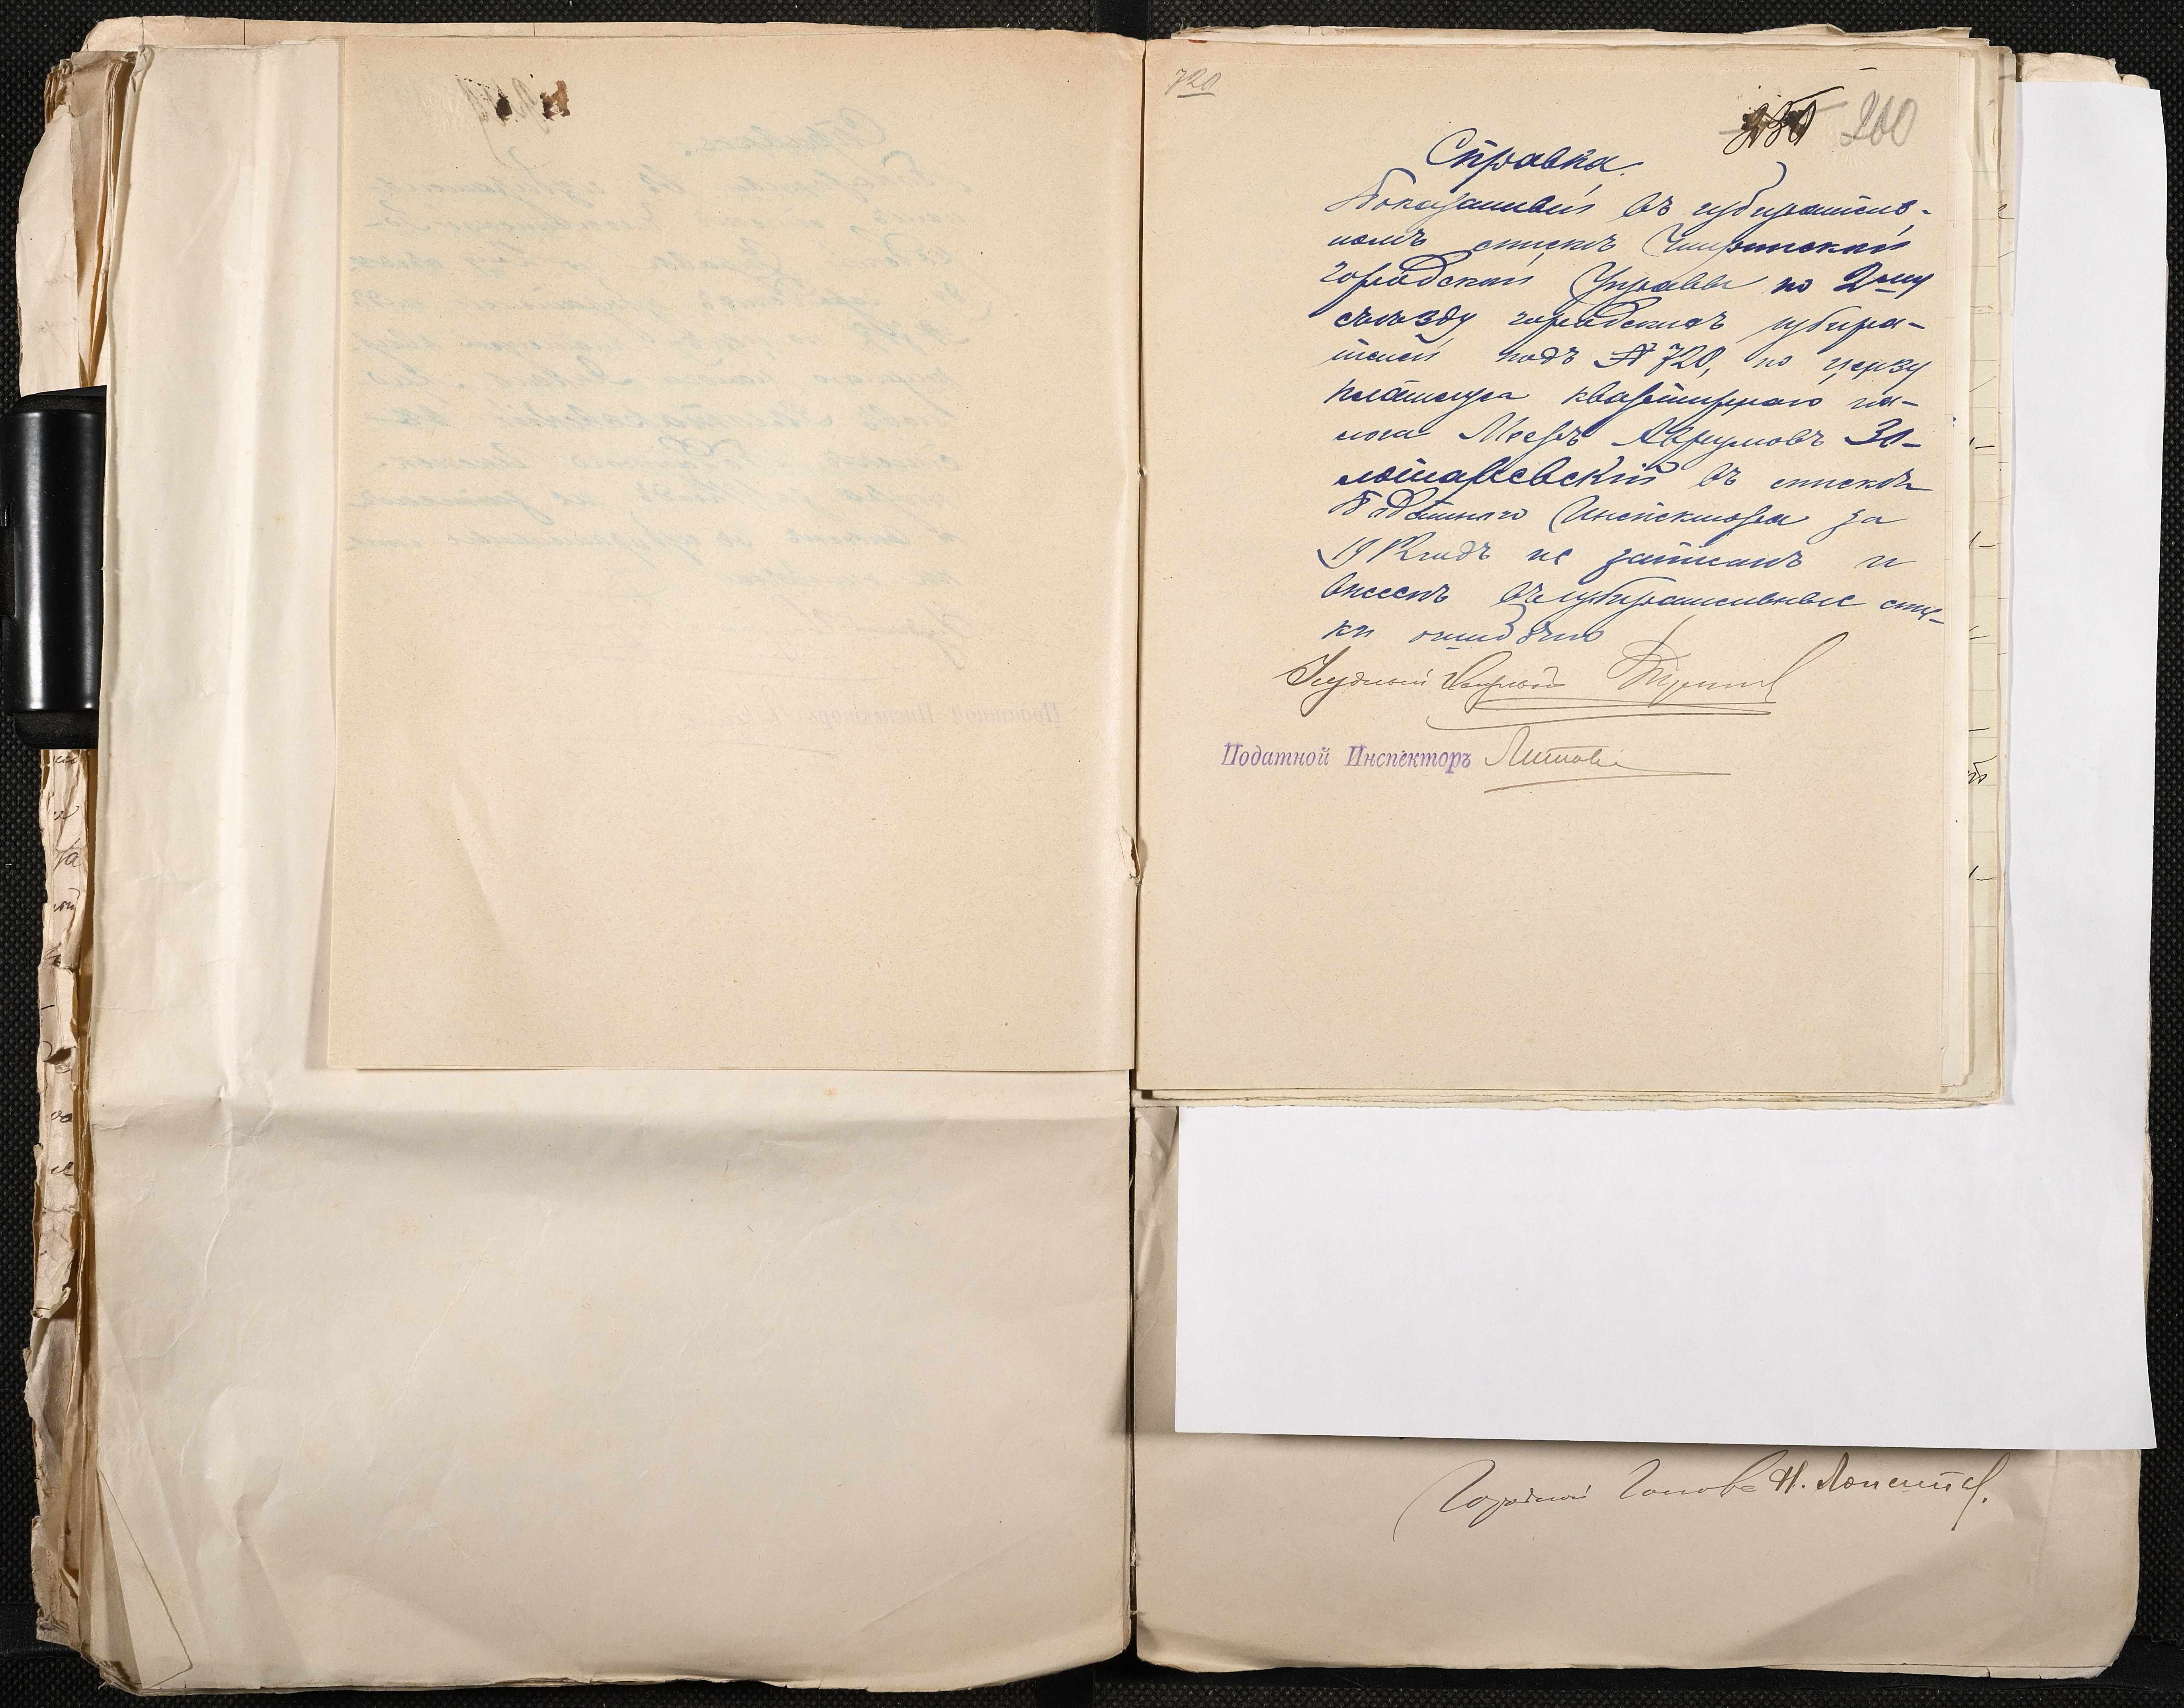 720
260
Справка.
Показанный въ избиратель-
номъ списке Чигиринской
городской Управы по 2му
съезду городскихъ избира-
телей подъ № 720, по цензу
квартирнаго на-
лога Мееръ Аврумовъ Зо-
лотаревскій въ списокъ
Податного Инспектора за
годъ не записанъ и
внесенъ въ избирательные спис-
ки ошибочно
Податной Инспекторъ
Городской Голова Н.